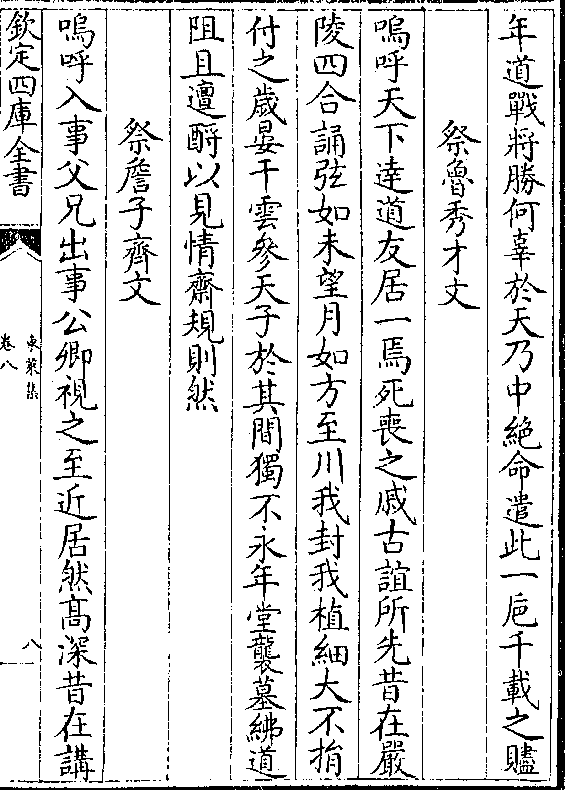 年道戰將勝何辜於天乃中絶命遣此一巵千載之贐
祭魯秀才文
嗚呼天下達道友居一焉死喪之戚古誼所先昔在嚴
陵四合誦弦如未望月如方至川我封我植細大不捐
付之歲晏干雲參天子於其間獨不永年堂襲墓紼道
阻且邅酹以見情齋規則然
祭詹子齊文
嗚呼入事父兄出事公卿視之至近居然高深昔在講
欽定四庫全書
東萊集
卷八
八